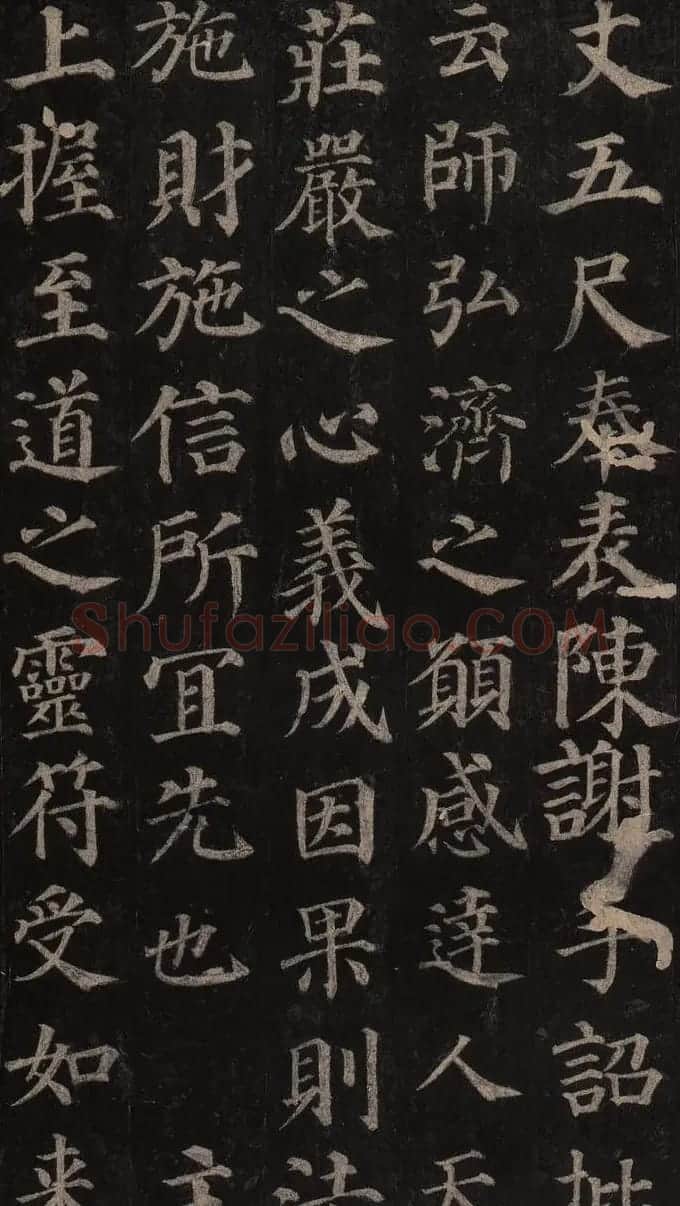 丈五尺奉表陳謝手詔批
云師弘濟之願感達人天
莊嚴之心義成因果則法
施財施信所宜先也 主
上握至道之靈符受如来
Shufaziliao.COM